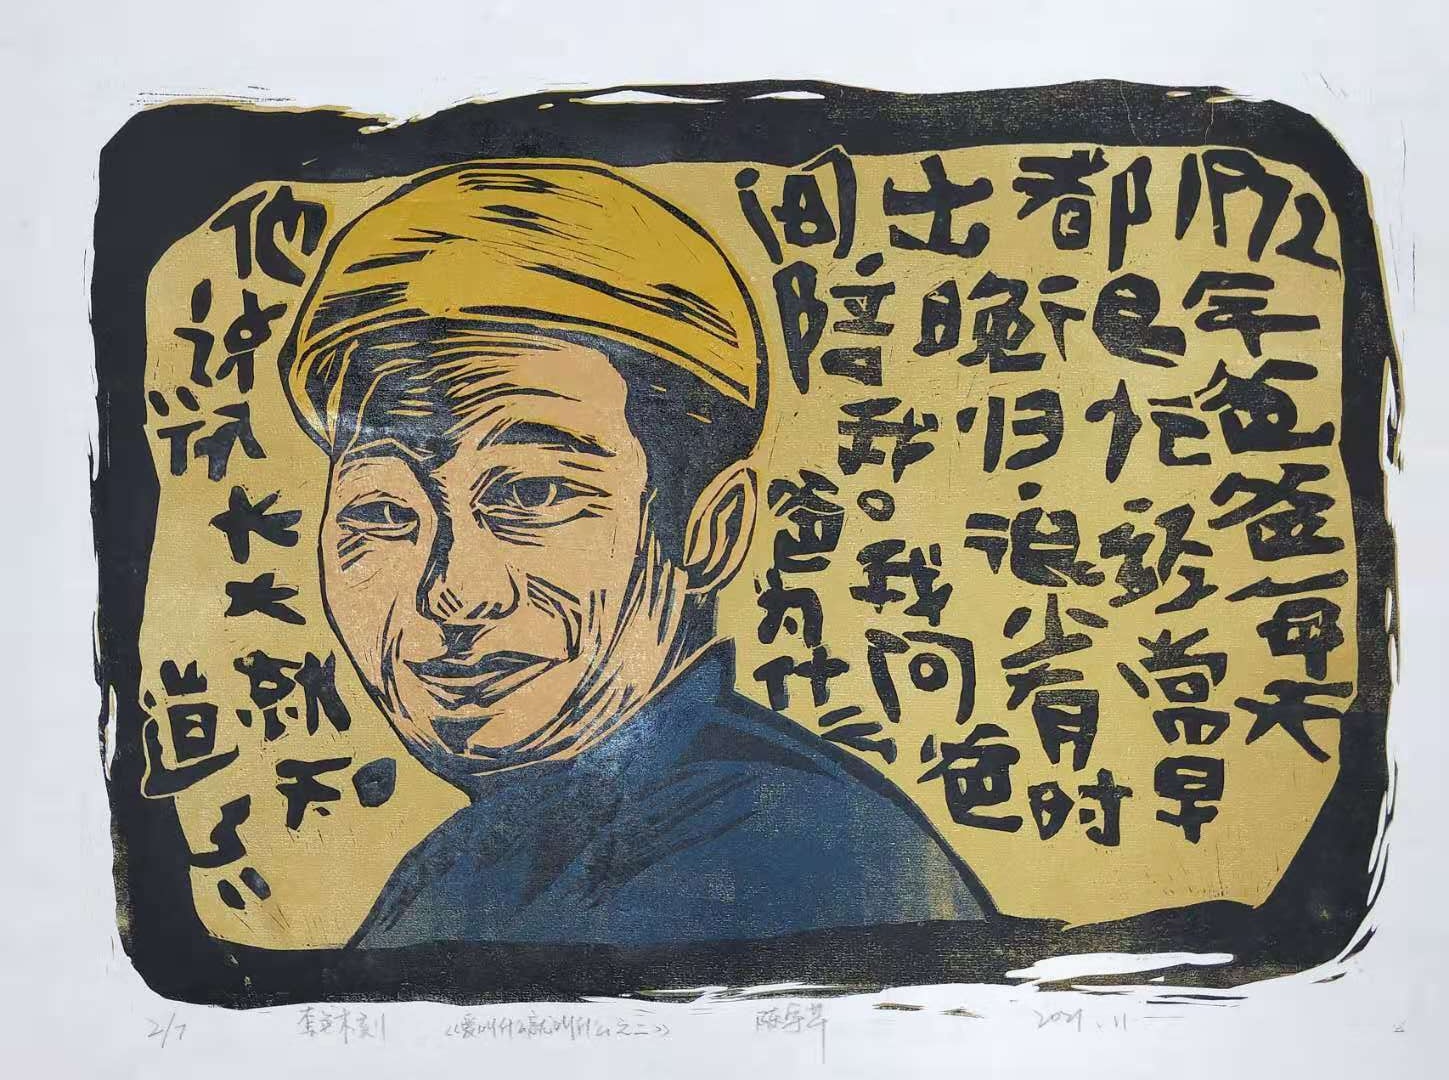 1972年爸爸每天
都很忙经常早
出晚归，很少有时
间陪我。我问爸
爸为什么
他说“你长大就知
道了”。
2/7
套色木刻
《爱叫什么就叫什么之二》
2021.11